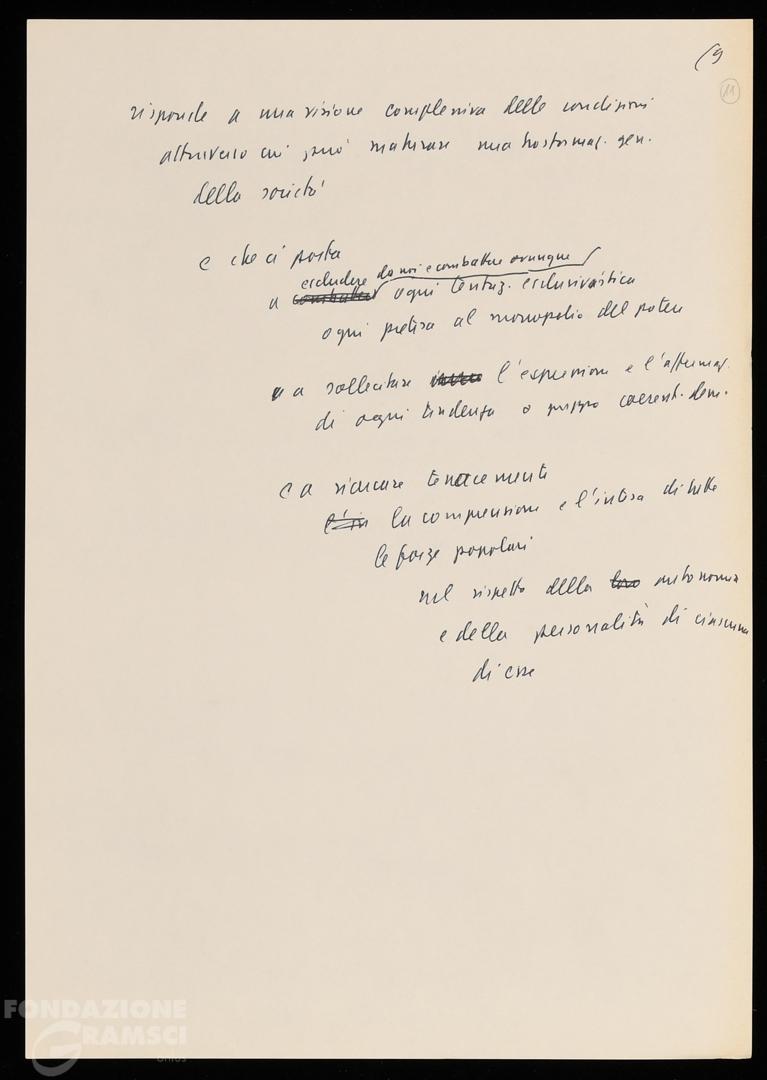 (9
11
risponde a una visione complessiva delle condizioni
attraverso cui può maturare una trasformaz. gen.
della società
e che ci porta
escludere da noi e combattere ovunque
a combattere ogni tentaz. esclusivistica
ogni pretesa al monopolio del potere
a sollecitare l'espressione e l'affermaz.
di ogni tendenza o gruppo coerent. dem.
e a ricercare tenacemente
l'in la comprensione e l'intesa di tutte
le forze popolari
nel rispetto della loro autonomia
e della personalità di ciascuna
di esse
FONDAZIONE
GRAMSCI
onlus